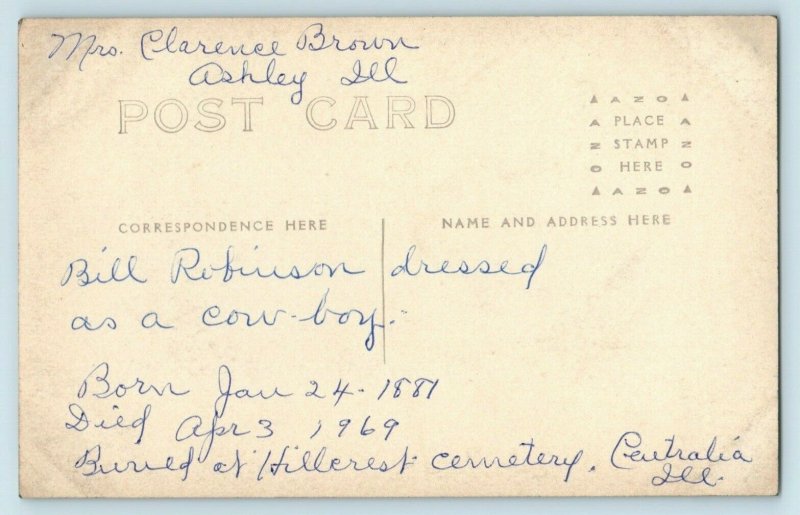 Mrs. Clarence Brown
Ashley Ill
POST CARD
▲ A Z O ▲
A PLACE A
Z STAMP Z
O HERE O
▲ A Z O ▲
CORRESPONDENCE HERE
NAME AND ADDRESS HERE
Bill Robinson dressed
as a cow-boy.
Born Jan 24-1881
Died Apr 3 1969
Buried at Hillcrest cemetery. Centralia
Ill.